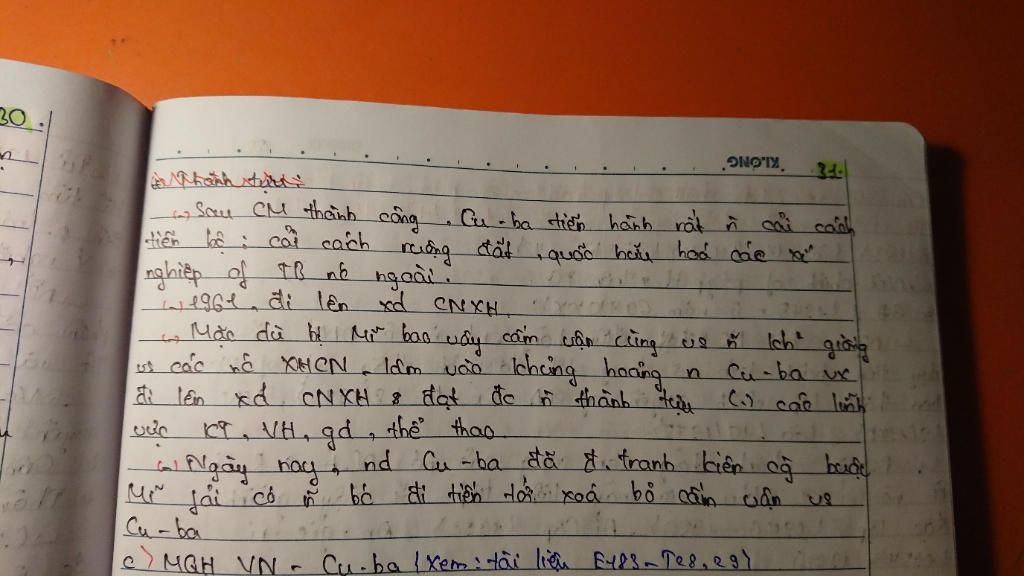 30.
KLONG
31.
Thành tựu:
(-) Sau CM thành công, Cu-ba tiến hành rất ñ cải cách
tiến bộ: cải cách ruộng đất, quốc hữu hoá các xí
nghiệp of TB nc ngoài.
(-) 1961, đi lên xd CNXH.
(-) Mặc dù bị Mĩ bao vây cấm vận cùng vs ñ khó giống
vs các nc XHCN, lâm vào khủng hoảng n Cu-ba vx
đi lên xd CNXH & đạt đc ñ thành tựu (.) các lĩnh
vực KT, VH, gd, thể thao.
(-) Ngày nay, nd Cu-ba đã đ.tranh kiên buộc
Mĩ fải có ñ bc đi tiến tới xoá bỏ cấm vận vs
Cu-ba
c) MQH VN - Cu-ba (Xem: tài liệu